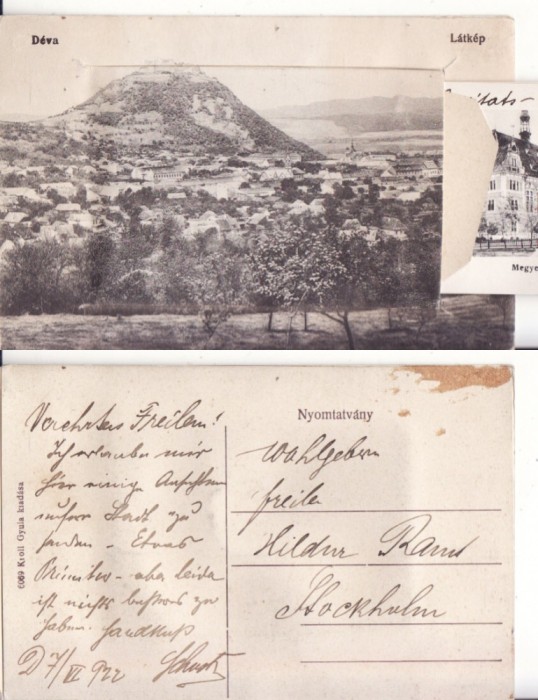 Déva
Látkép
Megye
Nyomtatvány
6069 Kroll Gyula kiadása
Verehrtes Freilein!
Ich erlaube mir
hier einige Ansichten
unserer Stadt zu
senden - Etwas
Primitiv - aber leider
ist nichts besseres zu
haben. Handkuß
D 7/VI 922
Wohlgeborn
Freile
Hildur
Stockholm